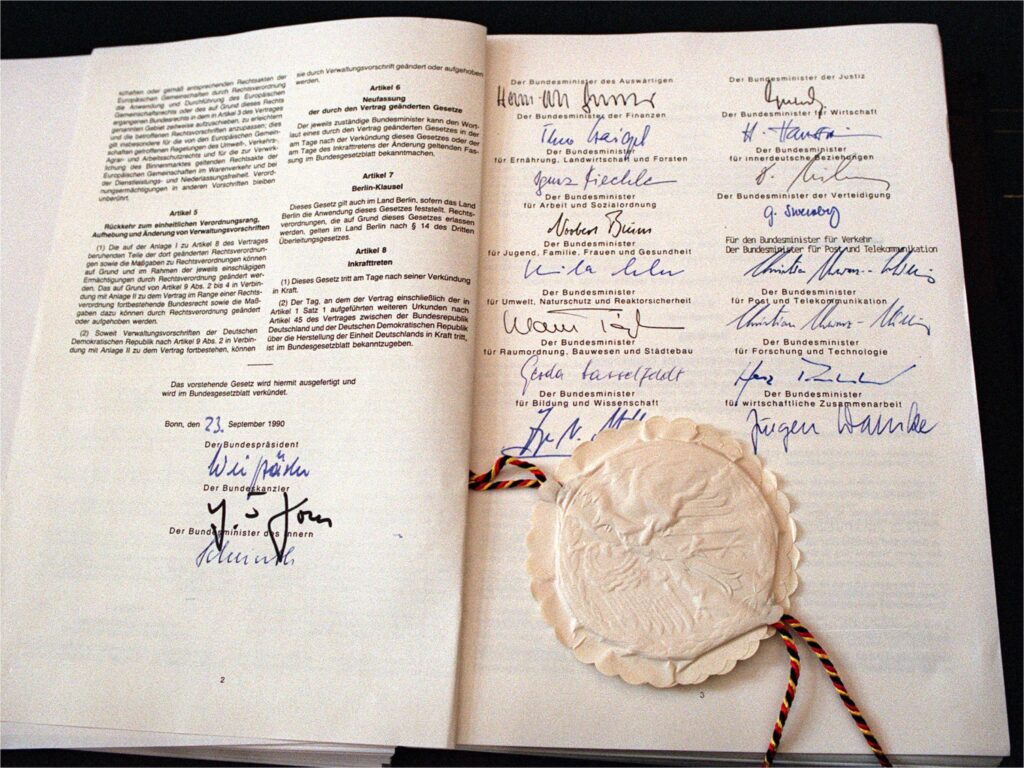 schaften oder gemäß entsprechenden Rechtsakten der
Europäischen Gemeinschaften durch Rechtsverordnung
die Anwendung und Durchführung des Europäischen
Gemeinschaftsrechts oder des auf Grund dieses Rechts
ergangenen Bundesrechts in dem in Artikel 3 des Vertrages
genannten Gebiet zeitweise aufzuschieben, zu erleichtern
und die betroffenen Rechtsvorschriften anzupassen; dies
gilt insbesondere für die von den Europäischen Gemein-
schaften getroffenen Regelungen des Umwelt-, Verkehr-,
Agrar- und Arbeitsschutzrechts und für die zur Verwirk-
lichung des Binnenmarktes geltenden Rechtsakte der
Europäischen Gemeinschaften im Warenverkehr und bei
der Dienstleistungs- und Niederlassungsfreiheit. Verord-
nungsermächtigungen in anderen Vorschriften bleiben
unberührt.
Artikel 5
Rückkehr zum einheitlichen Verordnungsrang,
Aufhebung und Änderung von Verwaltungsvorschriften
(1) Die auf der Anlage I zu Artikel 8 des Vertrages
beruhenden Teile der dort geänderten Rechtsverordnun-
gen sowie die Maßgaben zu Rechtsverordnungen können
auf Grund und im Rahmen der jeweils einschlägigen
Ermächtigungen durch Rechtsverordnung geändert wer-
den. Das auf Grund von Artikel 9 Abs. 2 bis 4 in Verbin-
dung mit Anlage II zu dem Vertrag im Range einer Rechts-
verordnung fortbestehende Bundesrecht sowie die Maß-
gaben dazu können durch Rechtsverordnung geändert
oder aufgehoben werden.
(2) Soweit Verwaltungsvorschriften der Deutschen
Demokratischen Republik nach Artikel 9 Abs. 2 in Verbin-
dung mit Anlage II zu dem Vertrag fortbestehen, können
sie durch Verwaltungsvorschrift geändert oder aufgehoben
werden.
Artikel 6
Neufassung
der durch den Vertrag geänderten Gesetze
Der jeweils zuständige Bundesminister kann den Wort-
laut eines durch den Vertrag geänderten Gesetzes in der
am Tage nach der Verkündung dieses Gesetzes oder der
am Tage des Inkrafttretens der Änderung geltenden Fas-
sung im Bundesgesetzblatt bekanntmachen.
Artikel 7
Berlin-Klausel
Dieses Gesetz gilt auch im Land Berlin, sofern das Land
Berlin die Anwendung dieses Gesetzes feststellt. Rechts-
verordnungen, die auf Grund dieses Gesetzes erlassen
werden, gelten im Land Berlin nach § 14 des Dritten
Überleitungsgesetzes.
Artikel 8
Inkrafttreten
(1) Dieses Gesetz tritt am Tage nach seiner Verkündung
in Kraft.
(2) Der Tag, an dem der Vertrag einschließlich der in
Artikel 1 Satz 1 aufgeführten weiteren Urkunden nach
Artikel 45 des Vertrages zwischen der Bundesrepublik
Deutschland und der Deutschen Demokratischen Republik
über die Herstellung der Einheit Deutschlands in Kraft tritt,
ist im Bundesgesetzblatt bekanntzugeben.
Das vorstehende Gesetz wird hiermit ausgefertigt und
wird im Bundesgesetzblatt verkündet.
Bonn, den 23. September 1990
Der Bundespräsident
Der Bundeskanzler
Der Bundesminister des Innern
2
Der Bundesminister des Auswärtigen
Der Bundesminister der Finanzen
Theo Waigel
Der Bundesminister
für Ernährung, Landwirtschaft und Forsten
Ignaz Kiechle
Der Bundesminister
für Arbeit und Sozialordnung
Norbert Blüm
Der Bundesminister
für Jugend, Familie, Frauen und Gesundheit
Der Bundesminister
für Umwelt, Naturschutz und Reaktorsicherheit
Der Bundesminister
für Raumordnung, Bauwesen und Städtebau
Gerda Hasselfeldt
Der Bundesminister
für Bildung und Wissenschaft
Der Bundesminister der Justiz
Der Bundesminister für Wirtschaft
Der Bundesminister
für innerdeutsche Beziehungen
Der Bundesminister der Verteidigung
Für den Bundesminister für Verkehr
Der Bundesminister für Post und Telekommunikation
Christian Schwarz-Schilling
Der Bundesminister
für Post und Telekommunikation
Christian Schwarz-Schilling
Der Bundesminister
für Forschung und Technologie
Der Bundesminister
für wirtschaftliche Zusammenarbeit
Jürgen Warnke
3